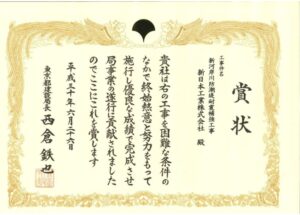 賞状
工事件名
新河岸川防潮堤耐震補強工事
新日本工業株式会社 殿
貴社は右の工事を困難な条件の
なかで終始熱意と努力をもって
施行し優良な成績で完成させ
局事業の遂行に貢献されました
のでここにこれを賞します
平成二十年六月二十六日
東京都建設局長 西倉鉄也